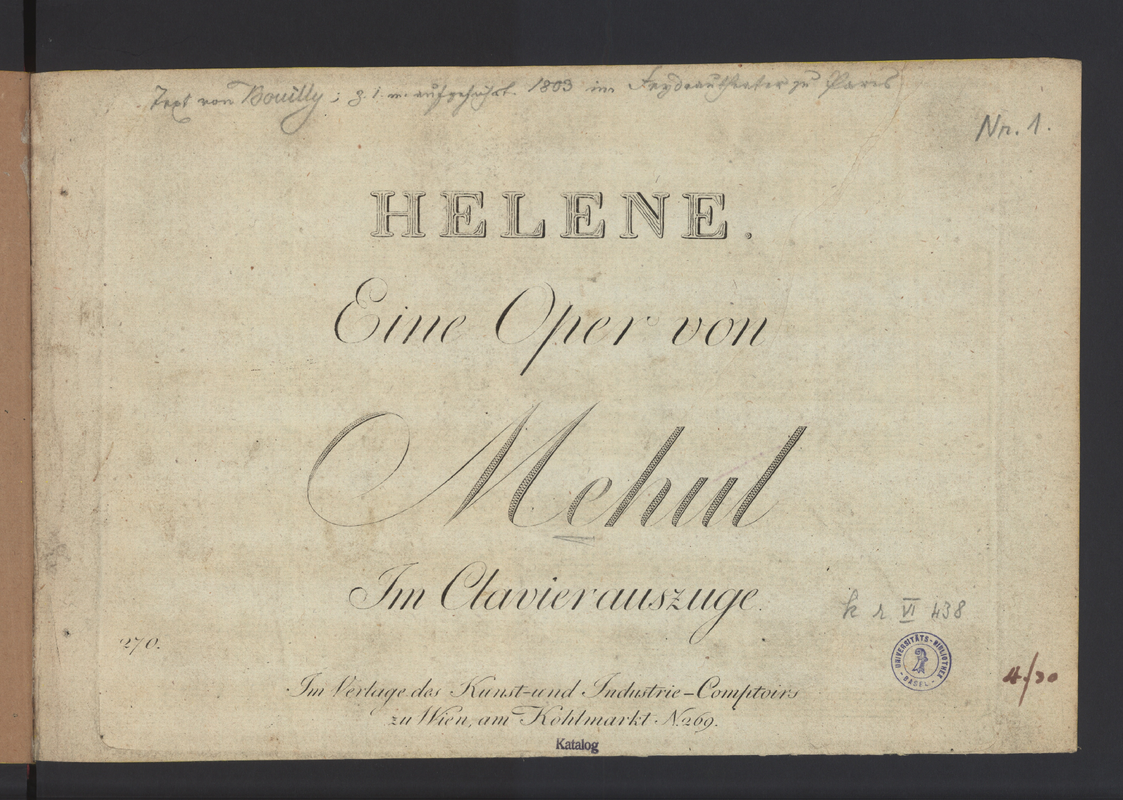 Text von Bouilly; z. 1. m. aufgeführt. 1803 im Feydeautheater zu Paris
Nr. 1.
HELENE.
Eine Oper von
Mehul
Im Clavierauszuge.
k r VI 438
270.
UNIVERSITÄTS-BIBLIOTHEK
BASEL
4/30
Im Verlage des Kunst-und Industrie-Comptoirs
zu Wien, am Kohlmarkt N. 269.
Katalog